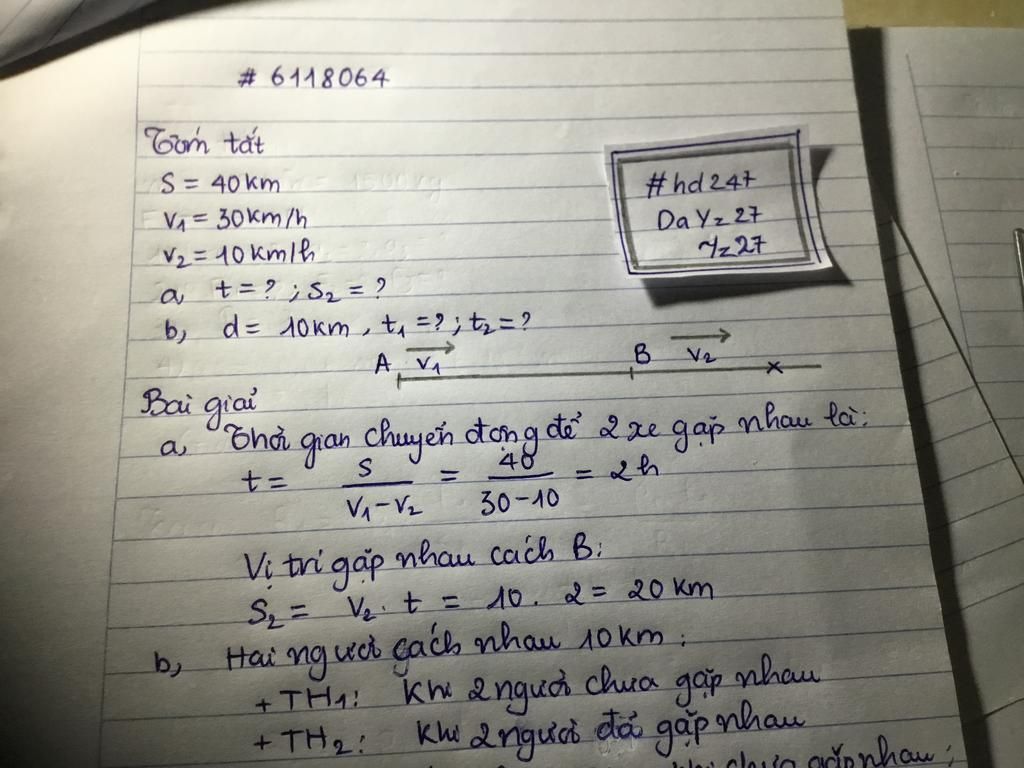 # 6118064
Tóm tắt
S = 40km
V₁ = 30km/h
V₂ = 10km/h
a, t = ? ; S₂ = ?
b, d = 10km, t₁ = ? ; t₂ = ?
#hd247
DaYz27
Yz27
A V₁ B V₂
Bài giải
a, Thời gian chuyển động để 2 xe gặp nhau là:
t = S/(V₁-V₂) = 40/(30-10) = 2h
Vị trí gặp nhau cách B:
S₂ = V₂. t = 10. 2 = 20km
b, Hai người cách nhau 10km:
+ TH₁: Khi 2 người chưa gặp nhau
+ TH₂: Khi 2 người đã gặp nhau
khi chưa gặp nhau: